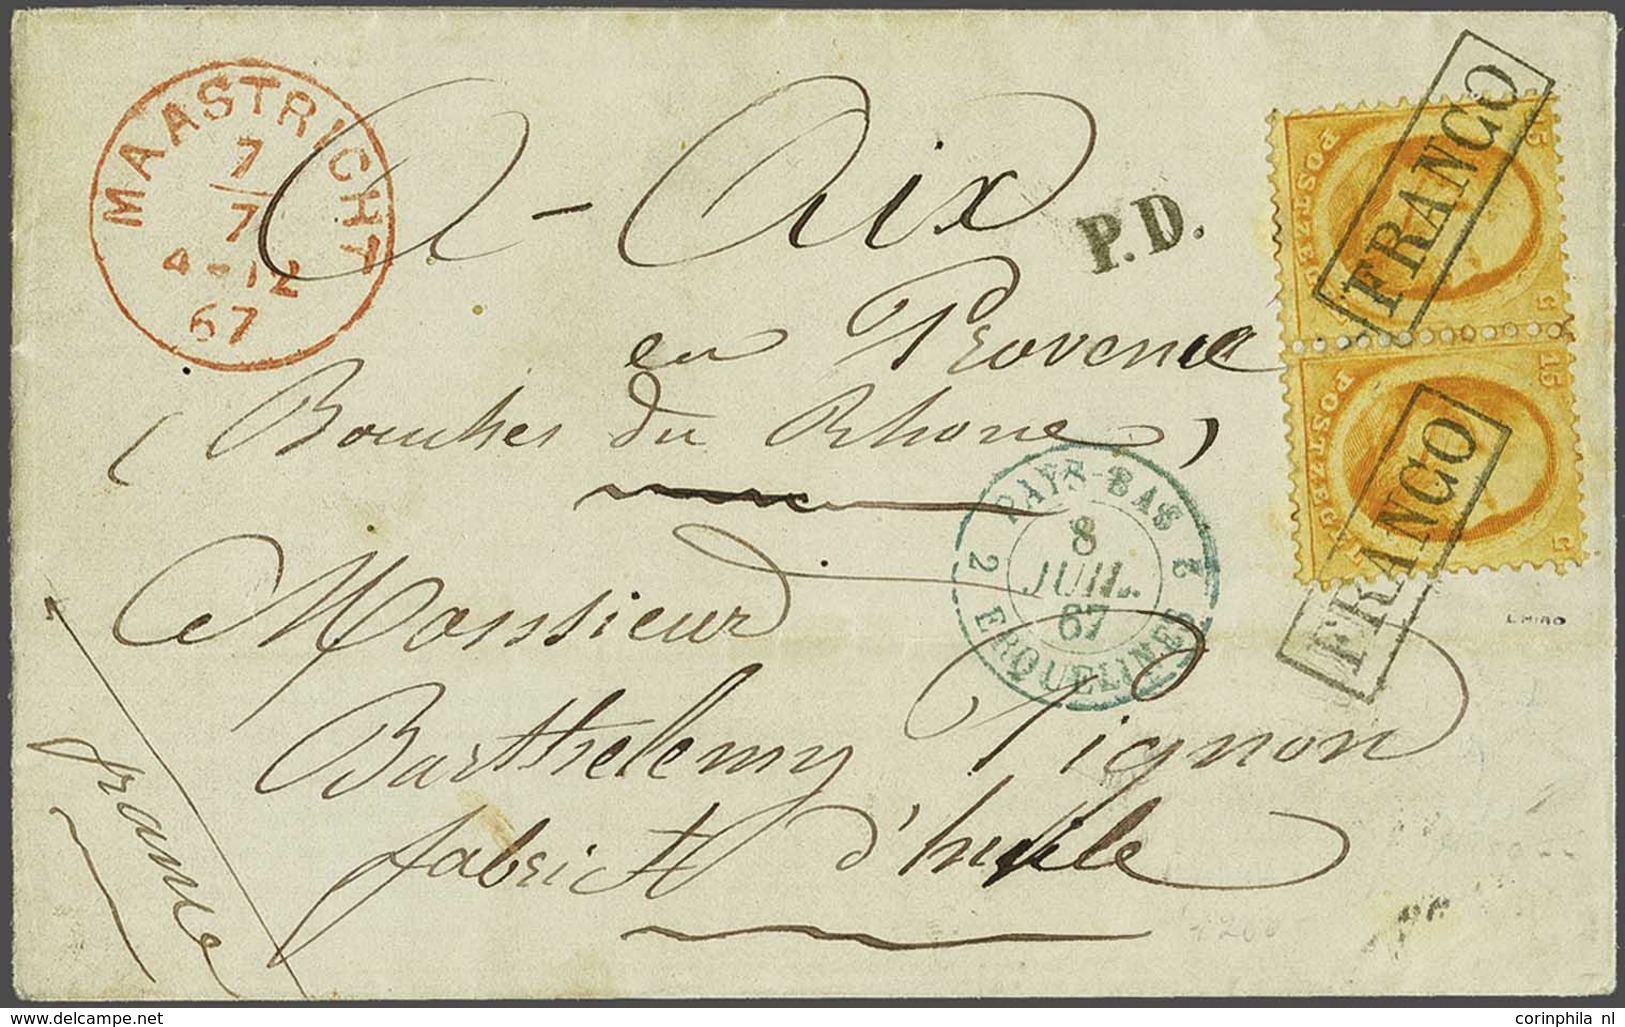 MAASTRICHT
7
7
4-12
67
A - Aix
P.D.
en Provence
(Bouches du Rhone)
PAYS-BAS
2 2
8
JUIL.
67
ERQUELINES
Monsieur
Barthelemy Pignon
fabrict d'huile
france
15
POSTZEGEL
FRANCO
15
POSTZEGEL
FRANCO
www.delcampe.net
corinphila nl